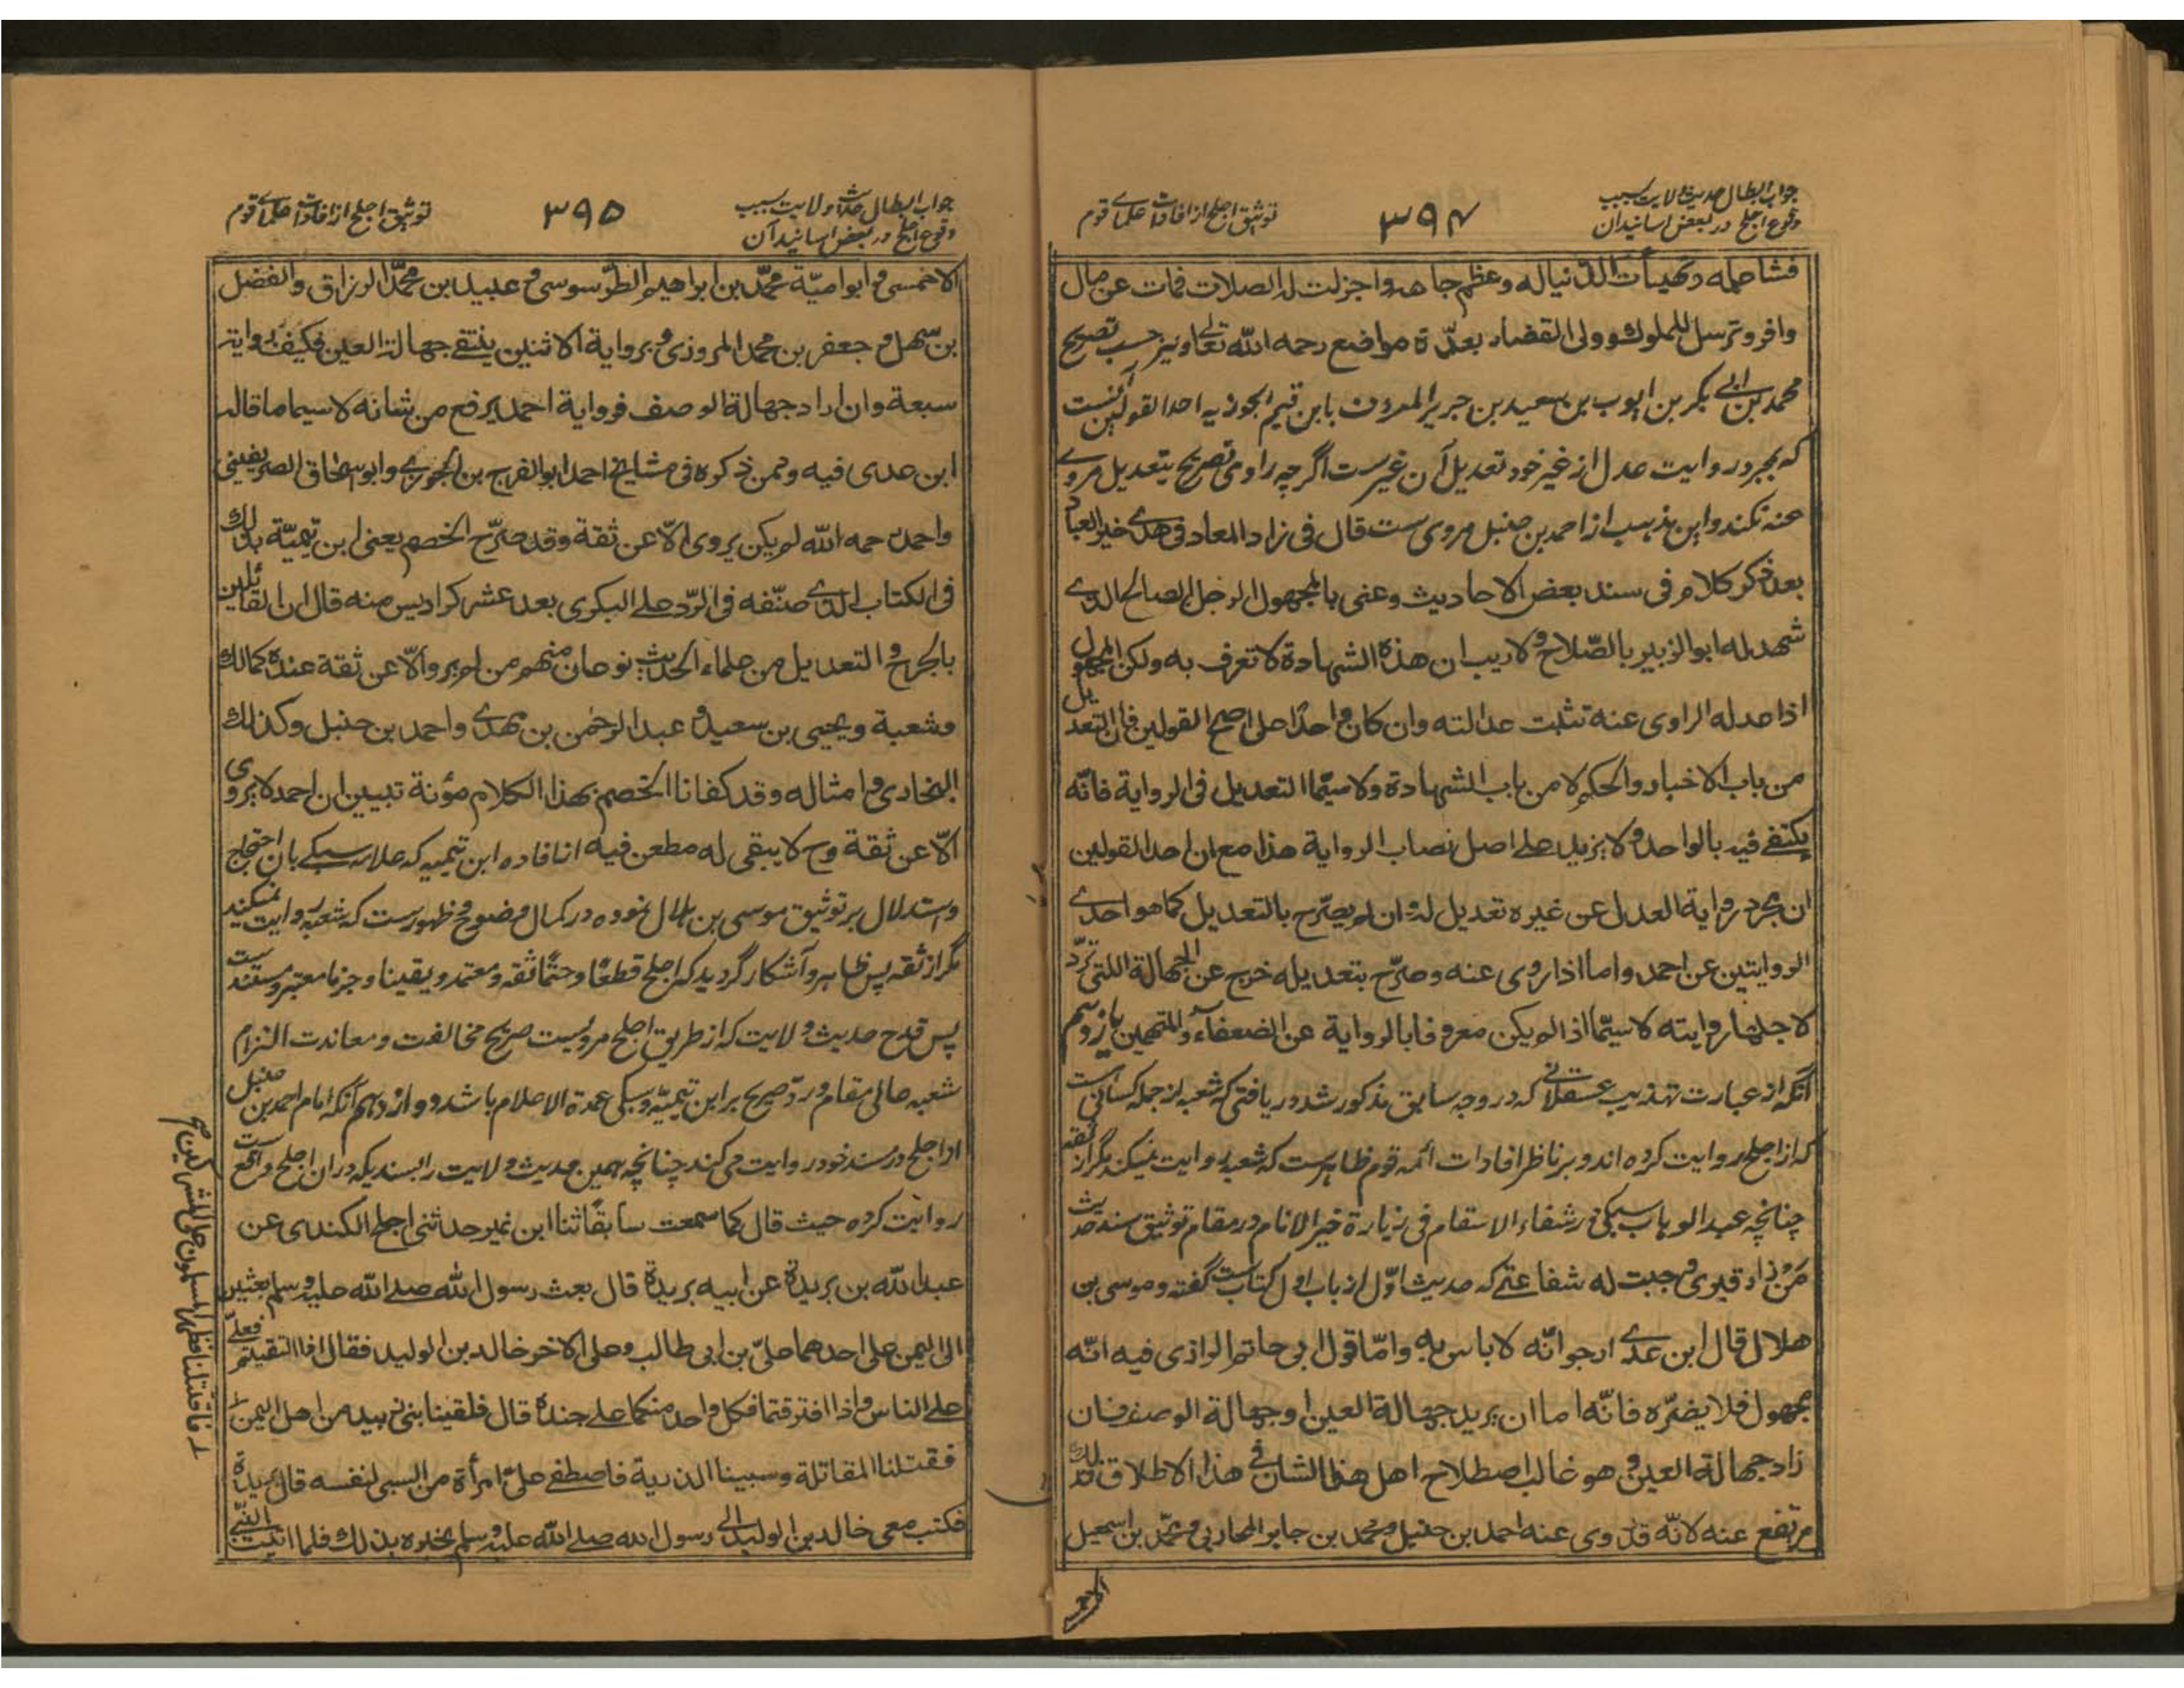 جواب ابطال حدیث ولایت بسبب
وقوع اجلح در بعض اسانید آن
۳۹۴
توثیق اجلح از افادات علمای قوم
فشا حمله وهیأت الدنیا له وعظم جاهه واجزلت له الصلات فمات عن مال
وافر وترسل للملوك وولى القضاء بعدّة مواضع رحمه الله تعالى ونیز حسب تصریح
محمد بن ابی بکر بن ایوب بن سعید بن جریر المعروف بابن قیم الجوزیه احد القولین آنست
که بمجرد روایت عدل از غیر خود تعدیل آن غیرست اگرچه راوی تصریح بتعدیل مروی
عنه نکند واین مذهب از احمد بن حنبل مروی ست قال فی زاد المعاد فی هدی خیر العباد
بعد ذکر کلام فی سند بعض الاحادیث وعنی بالمجهول الرجل الصالح الذی
شهد له ابو الزبیر بالصّلاح ولا ریب ان هذه الشهادة لا تعرف به ولکن المجهول
اذا عدله الراوی عنه تثبت عدالته وان کان واحدًا علی اصح القولین فان التعدیل
من باب الاخبار والحکم لا من باب الشهادة ولا سیّما التعدیل فی الروایة فانّه
یکتفی فیه بالواحد ولا یزید علی اصل نصاب الروایة هذا مع ان احد القولین
ان مجرد روایة العدل عن غیره تعدیل له وان لم یصرّح بالتعدیل کما هو احدی
الروایتین عن احمد واما اذا روی عنه وصرّح بتعدیله خرج عن الجهالة اللتی تردّ
لاجلها روایته لا سیّما اذا لم یکن معروفا بالروایة عن الضعفاء والمتهمین یازدهم
آنکه از عبارت تهذیب عسقلانی که در وجه سابق مذکور شد دریافتی که شعبه از جمله کسانی ست
که از اجلح روایت کرده اند وبر ناظر افادات ائمه قوم ظاهرست که شعبه روایت نمیکند مگر از ثقه
چنانچه عبد الوهاب سبکی در شفاء الاسقام فی زیارة خیر الانام در مقام توثیق سند حدیث
من زار قبری وجبت له شفاعتی که حدیث اوّل از باب اول کتابست گفته وموسی بن
هلال قال ابن عدی ارجو انّه لا باس به وامّا قول ابی حاتم الرازی فیه انّه
مجهول فلا یضرّه فانّه اما ان یرید جهالة العین او جهالة الوصف فان
زاد جهالة العین وهو غالب اصطلاح اهل هذا الشان فی هذا الاطلاق فذلك
مرتفع عنه لانّه قد روی عنه احمد بن حنبل ومحمد بن جابر المحاربی ومحمّد بن اسمعیل
الاحمسی
جواب ابطال حدیث ولایت بسبب
وقوع اجلح در بعض اسانید آن
۳۹۵
توثیق اجلح از افادات علمای قوم
الاحمسی وابو امیّة محمّد بن ابراهیم الطرسوسی وعبید بن محمّد الوراق والفضل
بن سهل وجعفر بن محمد المروزی وبروایة الاثنین ینتفی جهالة العین فکیف بروایة
سبعة وان اراد جهالة الوصف فروایة احمد یرفع من شانه لا سیما ما قاله
ابن عدی فیه وممن ذکره فی مشایخ احمد ابو الفرج بن الجوزی وابو اسحاق الصریفینی
واحمد رحمه الله لم یکن یروی الّا عن ثقة وقد صرّح الخصم یعنی ابن تیمیّة بذلك
فی الکتاب الذی صنّفه فی الردّ علی البکری بعد عشر کرادیس منه قال ان القائلین
بالجرح والتعدیل من علماء الحدیث نوعان منهم من لم یرو الّا عن ثقة عنده کمالك
وشعبة ویحیی بن سعید وعبد الرحمن بن مهدی واحمد بن حنبل وکذلك
البخاری وامثاله وقد کفانا الخصم بهذا الکلام مؤنة تبیین ان احمد لا یروی
الّا عن ثقة وح لا یبقی له مطعن فیه از افاده ابن تیمیه که علامه سبکی بان احتجاج
واستدلال بر توثیق موسی بن هلال نموده در کمال وضوح وظهورست که شعبه روایت نمیکند
مگر از ثقه پس ظاهر وآشکار گردید که اجلح قطعًا وحتمًا ثقه ومعتمد ویقینا وجزما معتبر ومستندست
پس قدح حدیث ولایت که از طریق اجلح مرویست صریح مخالفت ومعاندت التزام
شعبه عالی مقام وردّ صریح بر ابن تیمیّه وسبکی عمدة الاعلام باشد دوازدهم آنکه امام احمد بن حنبل
از اجلح در مسند خود روایت می کند چنانچه همین حدیث ولایت را بسندیکه دران اجلح واقع ست
روایت کرده حیث قال کما سمعت سابقًا ثنا ابن نمیر حدثنی اجلح الکندی عن
عبد الله بن بریدة عن ابیه بریدة قال بعث رسول الله صلی الله علیه وسلم بعثین
الی الیمن علی احدهما علیّ بن ابی طالب وعلی الاخر خالد بن الولید فقال اذا التقیتم فعلیّ
علی الناس واذا افترقتما فکل واحد منکما علی جنده قال فلقینا بنی زبید من اهل الیمن
فقتلنا المقاتلة وسبینا الذریة فاصطفی علیّ امرأة من السبی لنفسه قال بریدة
فکتب معی خالد بن الولید الی رسول الله صلی الله علیه وسلم یخبره بذلك فلما اتیت النبیّ
فاقتتلنا فظهر المسلمون علی المشرکین